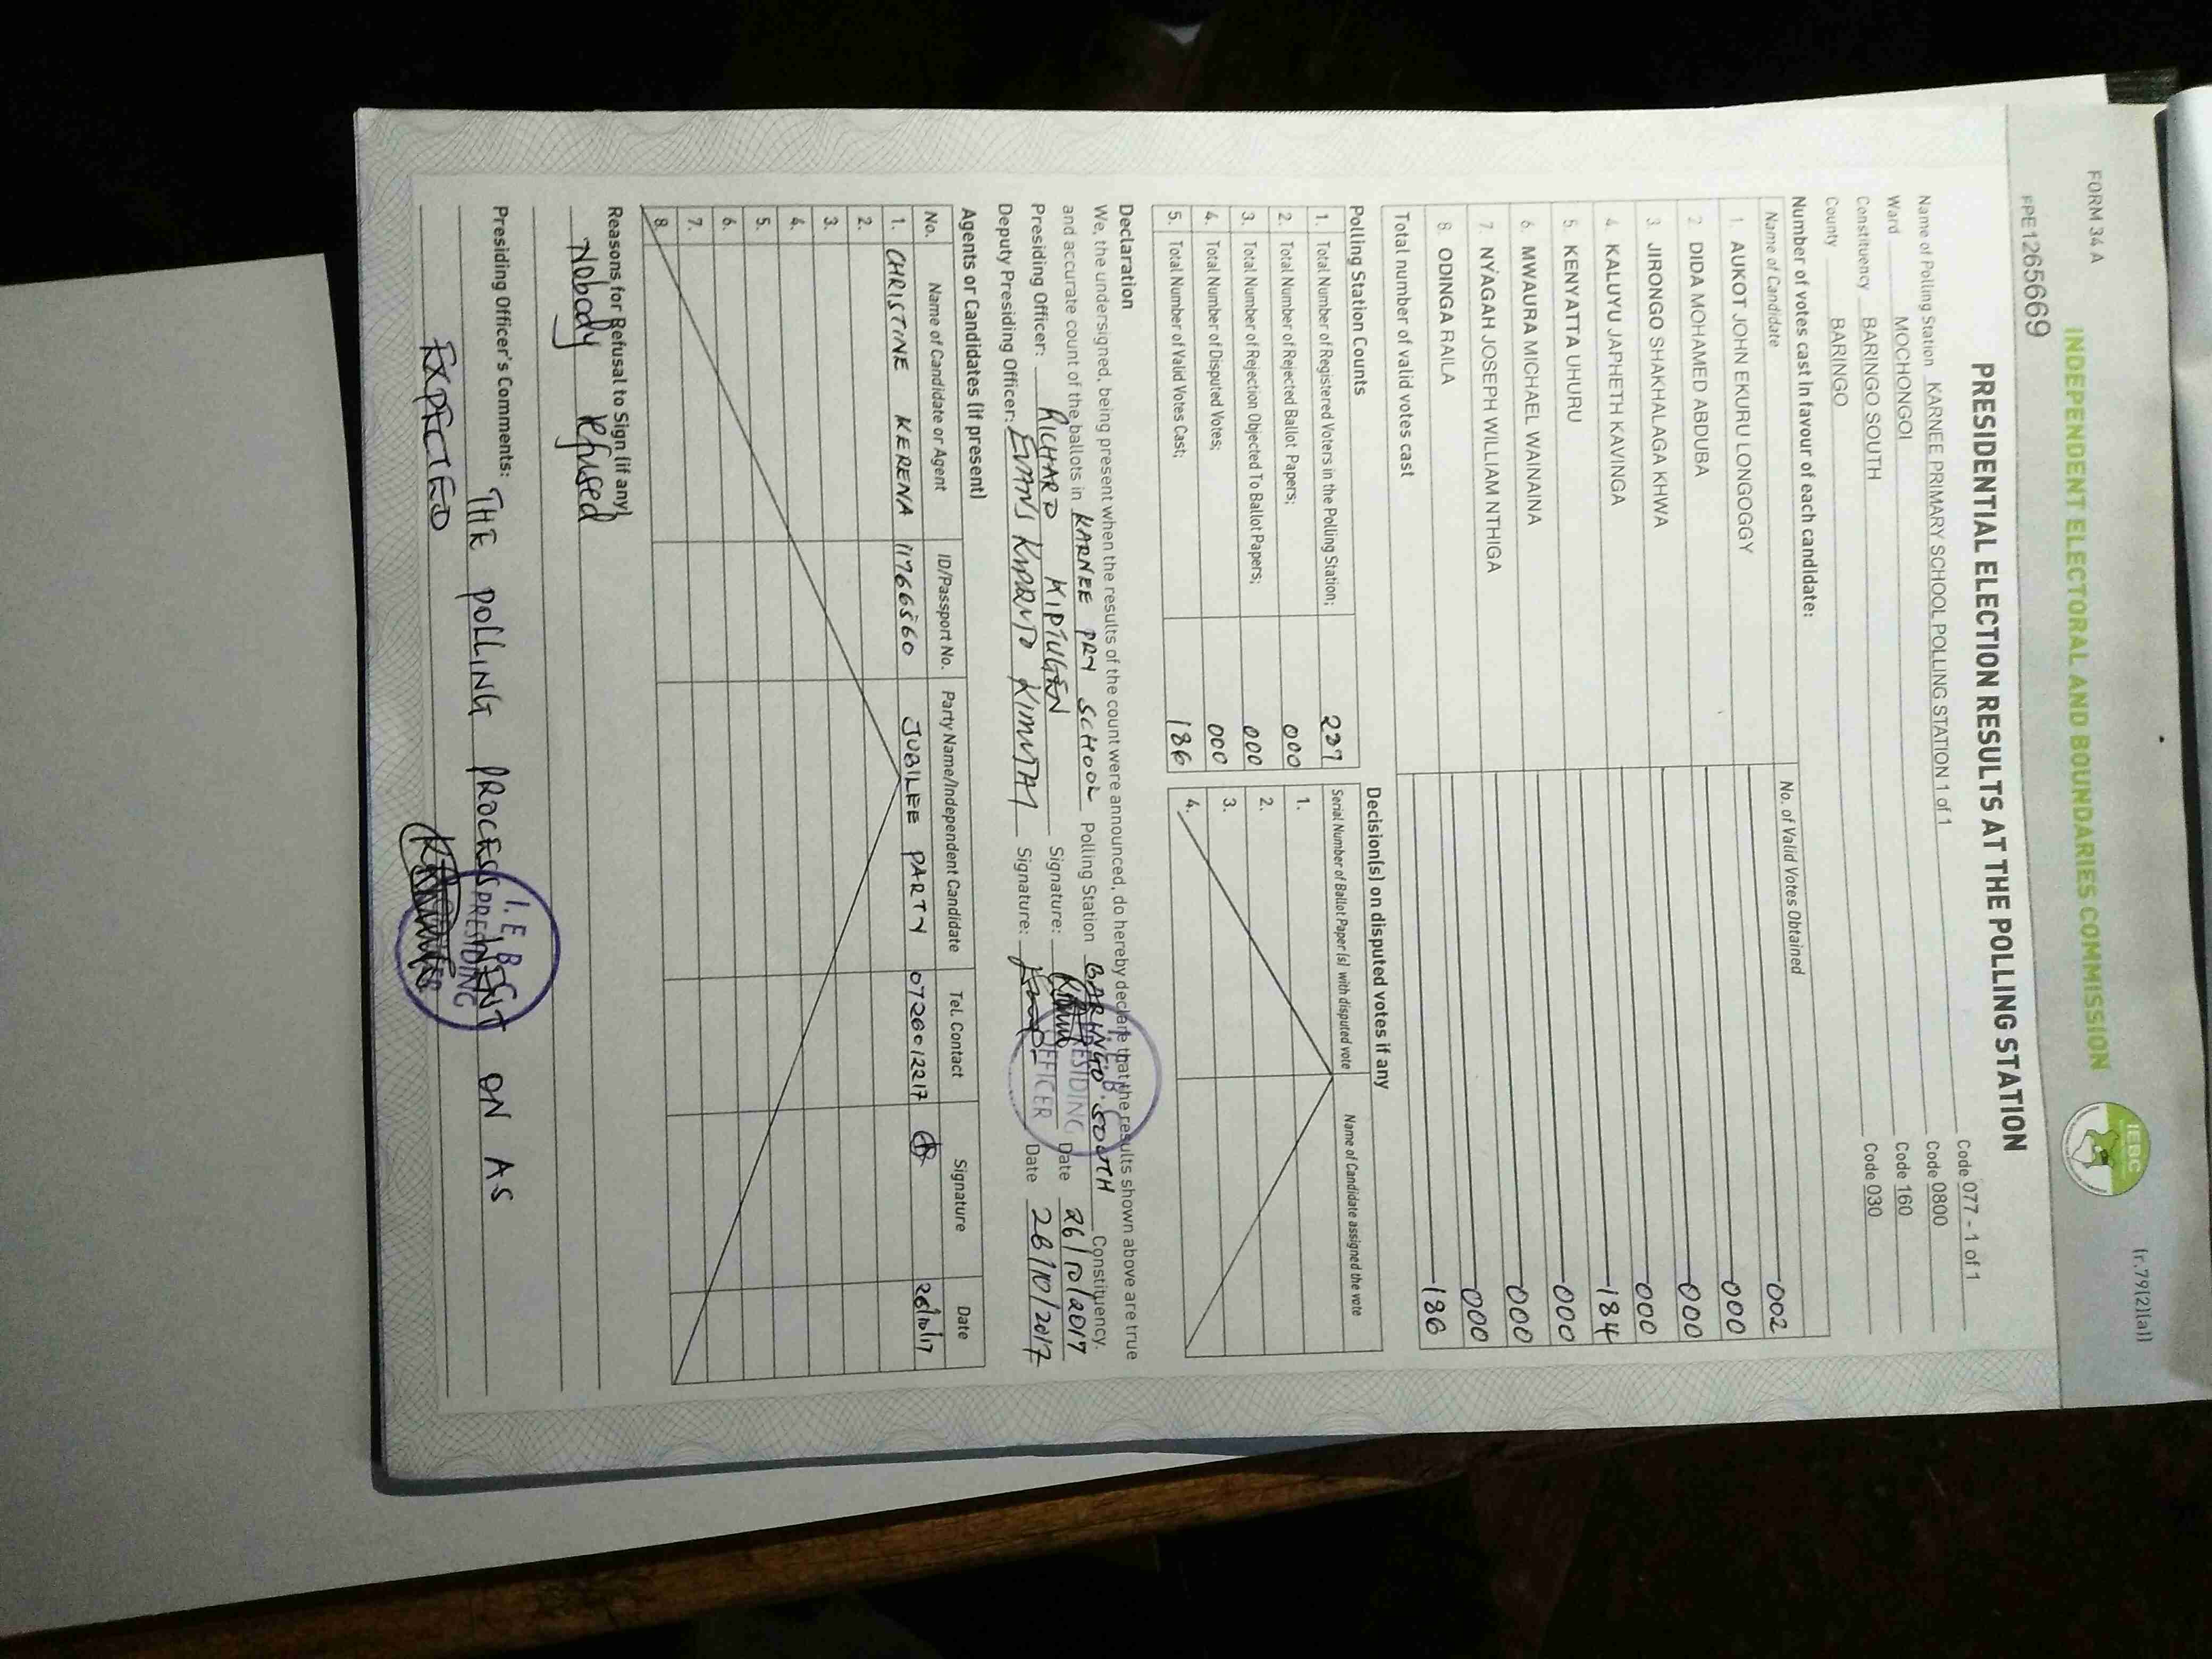 FORM 34 A
(r.79(2)(a))
INDEPENDENT ELECTORAL AND BOUNDARIES COMMISSION
IEBC
FPE1265669
PRESIDENTIAL ELECTION RESULTS AT THE POLLING STATION
Name of Polling Station KARNEE PRIMARY SCHOOL POLLING STATION 1 of 1 Code 077 - 1 of 1
Ward MOCHONGOI Code 0800
Constituency BARINGO SOUTH Code 160
County BARINGO Code 030
Number of votes cast in favour of each candidate:
Name of Candidate No. of Valid Votes Obtained
1. AUKOT JOHN EKURU LONGOGGY 002
2 DIDA MOHAMED ABDUBA 000
3. JIRONGO SHAKHALAGA KHWA 000
4 KALUYU JAPHETH KAVINGA 000
5. KENYATTA UHURU 184
6. MWAURA MICHAEL WAINAINA 000
7. NYAGAH JOSEPH WILLIAM NTHIGA 000
8. ODINGA RAILA 000
Total number of valid votes cast 186
Polling Station Counts
1. Total Number of Registered Voters in the Polling Station; 237
2. Total Number of Rejected Ballot Papers; 000
3. Total Number of Rejection Objected To Ballot Papers; 000
4. Total Number of Disputed Votes; 000
5. Total Number of Valid Votes Cast; 186
Decision(s) on disputed votes if any
Serial Number of Ballot Paper (s) with disputed vote Name of Candidate assigned the vote
1.
2.
3.
4.
Declaration
We, the undersigned, being present when the results of the count were announced, do hereby declare that the results shown above are true
and accurate count of the ballots in KARNEE PRY SCHOOL Polling Station BARINGO SOUTH Constituency.
Presiding Officer: RICHARD KIPTUGEN Signature: Date 26/10/2017
Deputy Presiding Officer: EVANS KIPRUTO KIMUTAI Signature: Date 26/10/2017
I.E.B.C PRESIDING OFFICER
Agents or Candidates (if present)
No. Name of Candidate or Agent ID/Passport No. Party Name/Independent Candidate Tel. Contact Signature Date
1. CHRISTINE KERENA 11766560 JUBILEE PARTY 0720012217 26/10/17
2.
3.
4.
5.
6.
7.
8.
Reasons for Refusal to Sign (if any)
Nobody refused
Presiding Officer's Comments: THE POLLING PROCESS WENT ON AS
EXPECTED
I.E.B.C PRESIDING